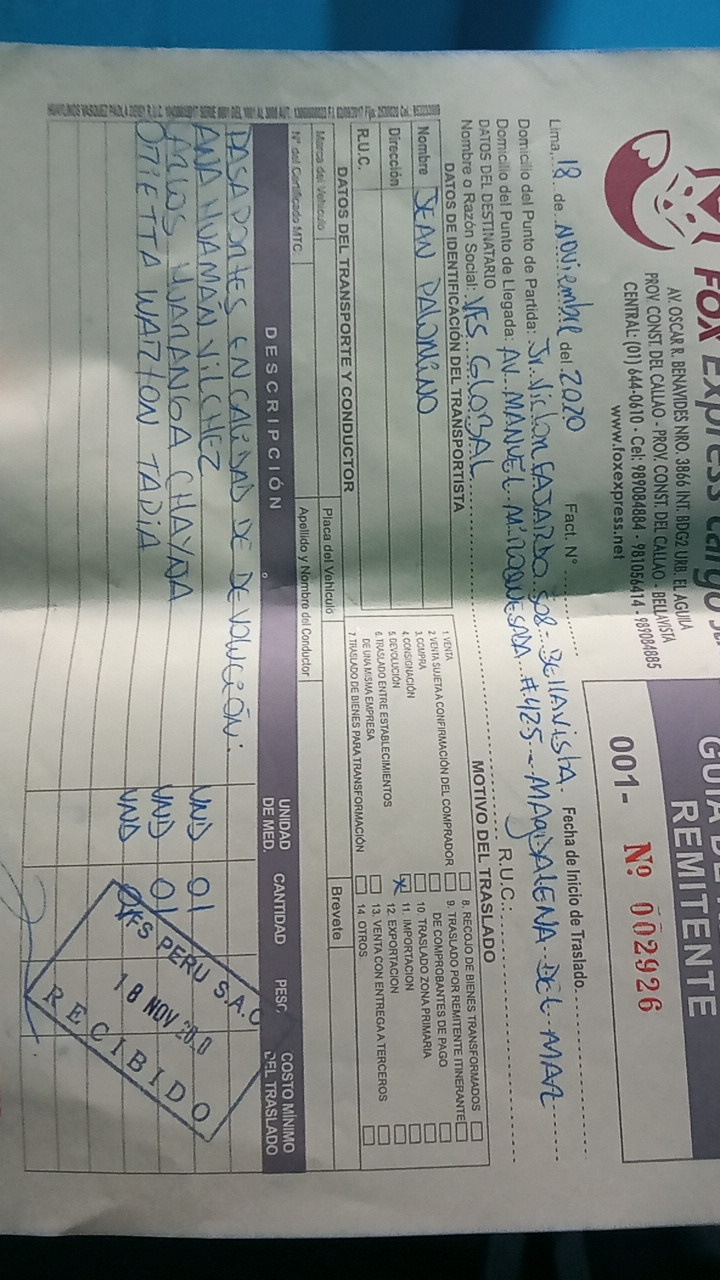 FOX Express Cargo
AV. OSCAR R. BENAVIDES NRO. 3866 INT. BDG2 URB. EL AGUILA
PROV. CONST. DEL CALLAO - PROV. CONST. DEL CALLAO - BELLAVISTA
CENTRAL: (01) 644-0610 - Cel: 989084884 - 981056414 - 989084885
www.foxexpress.net
REMITENTE
001- Nº 002926
Lima, 18 de NOViembre del 2020 Fact. N°
Fecha de Inicio de Traslado
Domicilio del Punto de Partida: Jr. Victor FAJARDO 508 - BELLAVISTA.
Domicilio del Punto de Llegada: AV. MANUEL M'ROQUESADA #425 - MAgDALENA DEL MAR
DATOS DEL DESTINATARIO
Nombre o Razón Social: VFS GLOBAL R.U.C.:
DATOS DE IDENTIFICACIÓN DEL TRANSPORTISTA
Nombre JEAN PALOMINO
Dirección
R.U.C.
MOTIVO DEL TRASLADO
1. VENTA
2. VENTA SUJETA A CONFIRMACIÓN DEL COMPRADOR
3. COMPRA
4. CONSIGNACIÓN
5. DEVOLUCIÓN X
6. TRASLADO ENTRE ESTABLECIMIENTOS
DE UNA MISMA EMPRESA
7. TRASLADO DE BIENES PARA TRANSFORMACIÓN
8. RECOJO DE BIENES TRANSFORMADOS
9. TRASLADO POR REMITENTE ITINERANTE
DE COMPROBANTES DE PAGO
10. TRASLADO ZONA PRIMARIA
11. IMPORTACION
12. EXPORTACION
13. VENTA CON ENTREGA A TERCEROS
14. OTROS
DATOS DEL TRANSPORTE Y CONDUCTOR
Marca del Vehículo Placa del Vehículo Brevete
N° del Certificado MTC Apellido y Nombre del Conductor
DESCRIPCIÓN UNIDAD DE MED. CANTIDAD PESO COSTO MÍNIMO DEL TRASLADO
PASAPORTES EN CALIDAD DE DEVOLUCIÓN:
ANA HUAMÁN VILCHEZ UND 01
CARLOS HUARANGA CHAYÑA UND 01
OTIETTA WARTON TAPIA UND 01
VFS PERU S.A.C
18 NOV 2020
RECIBIDO